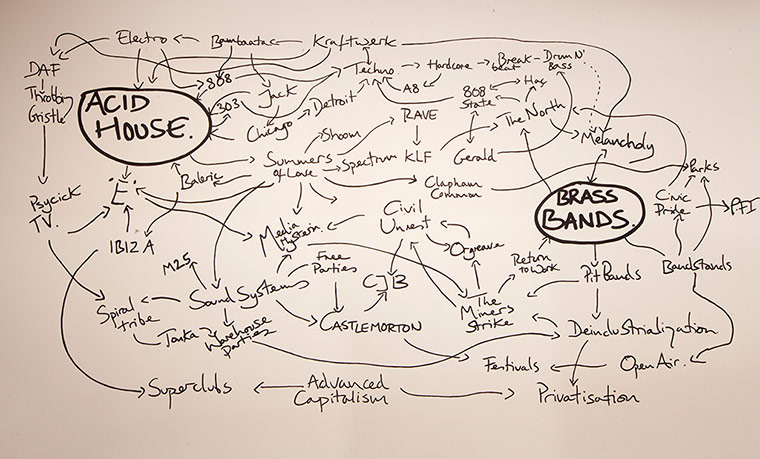 Electro
Bambaataa
Kraftwerk
DAF
808
Techno
Hardcore
Break-
beat
Drum N'
Bass
Throbbing
Gristle
ACID
HOUSE.
303
Jack
Detroit
A8
808
State
Haç
Chicago
RAVE
The North
Shoom
Melancholy
Summers
of Love
Spectrum
KLF
Gerald
Parks
Baleric
Clapham
Common
Psychick
TV.
'E'
BRASS
BANDS.
Civic
Pride
PFI
Media
Hysteria
Civil
Unrest
IBIZA
Orgreave
M25
Free
Parties
Return
to Work
Pit Bands
Bandstands
CJB
Spiral
tribe
Sound Systems
The
Miners
Strike
Tonka
Warehouse
Parties
CASTLEMORTON
Deindustrialization
Festivals
Open Air.
Superclubs
Advanced
Capitalism
Privatisation